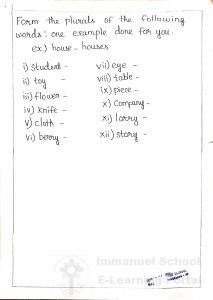 Form the plurals of the following
words: one example done for you.
ex) house - houses
i) student -
ii) toy -
iii) flower -
iv) knife -
v) cloth -
vi) berry -
vii) eye -
viii) table -
ix) piece -
x) company -
xi) lorry -
xii) story -
Immanuel School
E-Learning Portal